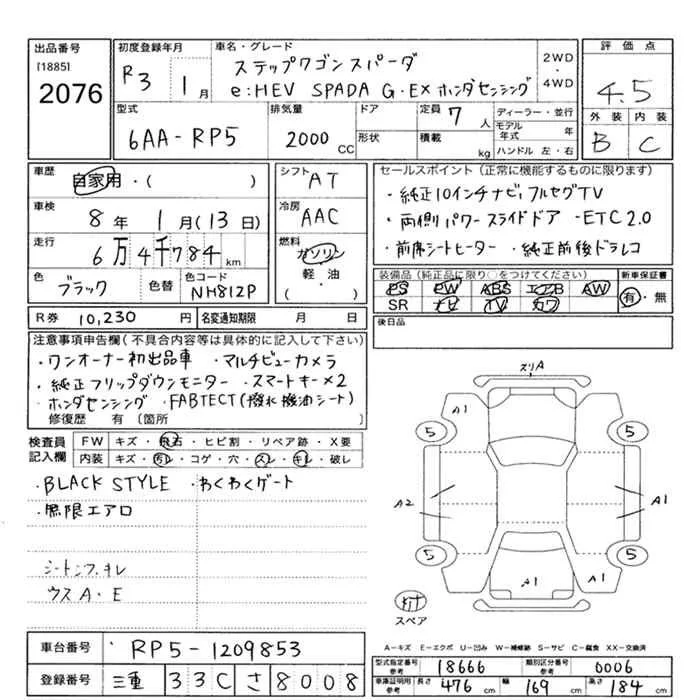 出品番号
[1885]
2076
初度登録年月
R3年 1月
車名・グレード
ステップワゴンスパーダ
e:HEV SPADA G・EX ホンダセンシング
2WD
・
4WD
評価点
4.5
外装 内装
B C
型式
6AA-RP5
排気量
2000 CC
ドア
形状
定員 7 人
積載 kg
ディーラー・並行
モデル年式 年
ハンドル 左・右
車歴
自家用・( )
車検
8年 1月(13日)
走行
6万4千784km
色
ブラック
色替
色コード
NH812P
シフト
AT
冷房
AAC
燃料
ガソリン
軽・油
( )
R券 10,230 円
名変通知期限 月 日
セールスポイント(正常に機能するものに限ります)
・純正10インチナビ,フルセグTV
・両側パワースライドドア ・ETC2.0
・前席シートヒーター ・純正前後ドラレコ
装備品(純正品に限り○をつけてください)
PS PW ABS エアB AW
SR ナビ TV カワ
新車保証書
有・無
後日品
注意事項申告欄(不具合内容等は具体的に記入して下さい)
・ワンオーナー初出品車 ・マルチビューカメラ
・純正フリップダウンモニター ・スマートキー×2
・ホンダセンシング ・FABTECT(撥水撥油シート)
修復歴 有 〔箇所 〕
検査員記入欄
FW キズ・飛石・ヒビ割・リペア跡・X要
内装 キズ・汚レ・コゲ・穴・スレ・キレ・破レ
・BLACK STYLE ・わくわくゲート
・無限エアロ
ウスA・E
スリA
A1
5
5
A2
A1
5
5
A1
A1
スペア
A-キズ E-エクボ U-凹み W-補修跡 S-サビ C-腐食 XX-交換済
車台番号 RP5-1209853
登録番号 三重 33C さ 8008
型式指定番号 参考 18666
類別区分番号 参考 0006
車庫証明用 参考 長さ 476 cm 幅 169 cm 高さ 184 cm